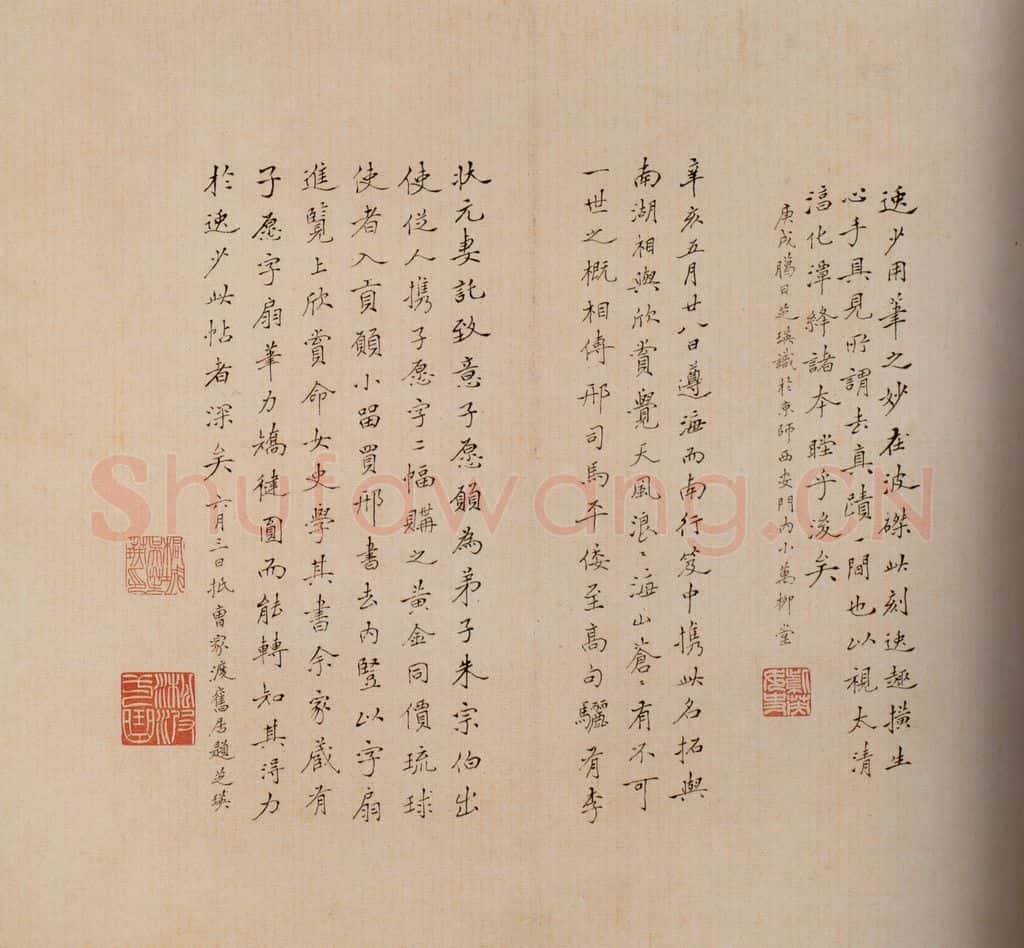 逸少用筆之妙在波磔此刻逸趣橫生
心手具見所謂去真蹟一間也以視太清
淳化潭絳諸本瞠乎後矣
庚戌臈日芝瑛識於京師西安門內小萬柳堂
辛亥五月廿八日遵海而南行笈中携此名拓與
南湖相與欣賞覺天風浪浪海山蒼蒼有不可
一世之概相傳邢司馬平倭至高句驪有李
狀元妻託致意子愿願為弟子朱宗伯出
使從人携子愿字二幅購之黃金同價琉球
使者入貢願小留買邢書去內豎以字扇
進覽上欣賞命女史學其書余家藏有
子愿字扇筆力矯健圓而能轉知其得力
於逸少此帖者深矣六月三日抵曹家渡舊居題芝瑛
Shufawang.CN